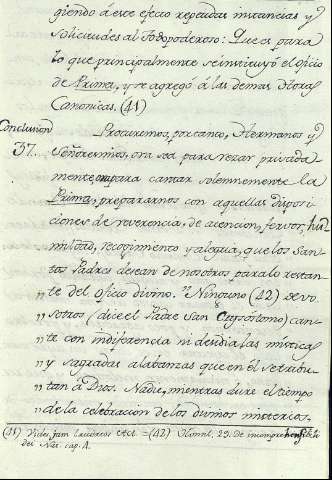 giendo á este efecto repetidas instancias y
solicitudes al Todopoderoso: Que es para
lo que principalmente se instituyó el oficio
de Prima, y se agregó á las demas Horas
Canonicas. (41)
Conclusion
37.
Procuremos, por tanto, Hermanos y
Señores mios, ora sea para rezar privada
mente, ora para cantar solemnemente la
Prima, prepararnos con aquellas disposi
ciones de reverencia, de atencion, fervor, hu
mildad, recogimento y alegria, que los San
tos Padres desean de nosotros para lo restan
te del oficio divino. "Ninguno (42) de vo
" sotros (dice el Padre San Crysóstomo) can
" te con indiferencia ni desidia las misticas
" y sagradas alabanzas que en él se tribu
" tan á Dios. Nadie, mientras dure el tiempo
" de la celebracion de los divinos misterios,
(41) Vide, jam lucis orto etct. = (42) Homil. 23. de incomprehensibili
Dei Nat. cap. 4.